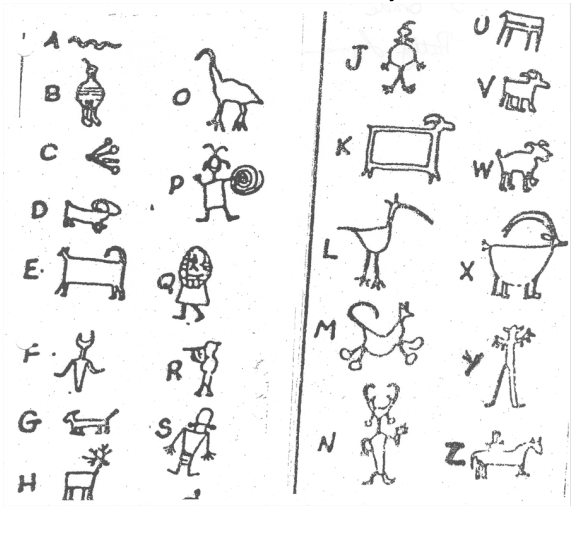 A
B
C
D
E.
F
G
H
O
P
Q
R
S
J
K
L
M
N
U
V
W
X
Y
Z